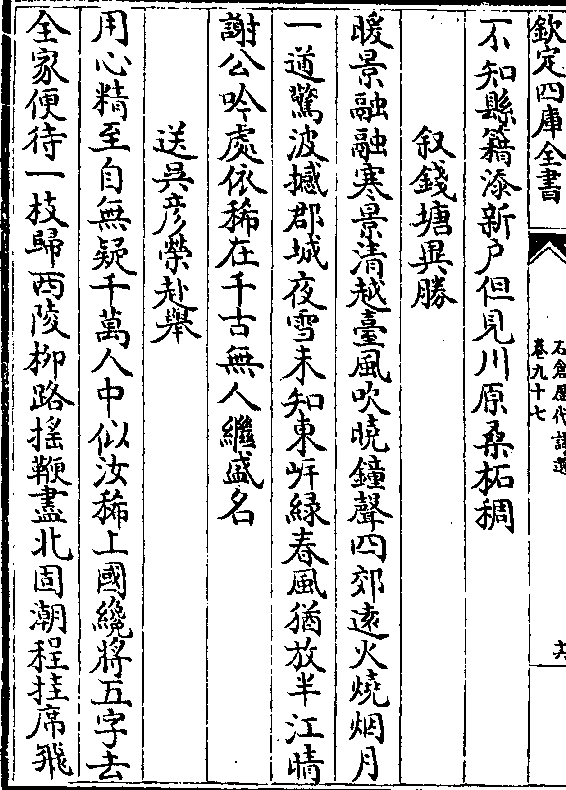 欽定四庫全書
石倉歷代詩選
卷九十七
六
不知縣籍添新户但見川原桑柘稠
叙錢塘異勝
暖景融融寒景清越臺風吹曉鐘聲四郊逺火燒烟月
一道驚波撼郡城夜雪未知東岸緑春風猶放半江晴
謝公吟處依稀在千古無人繼盛名
送吳彦榮赴舉
用心精至自無疑千萬人中似汝稀上國纔將五字去
全家便待一枝歸西陵柳路搖鞭盡北固潮程挂席飛